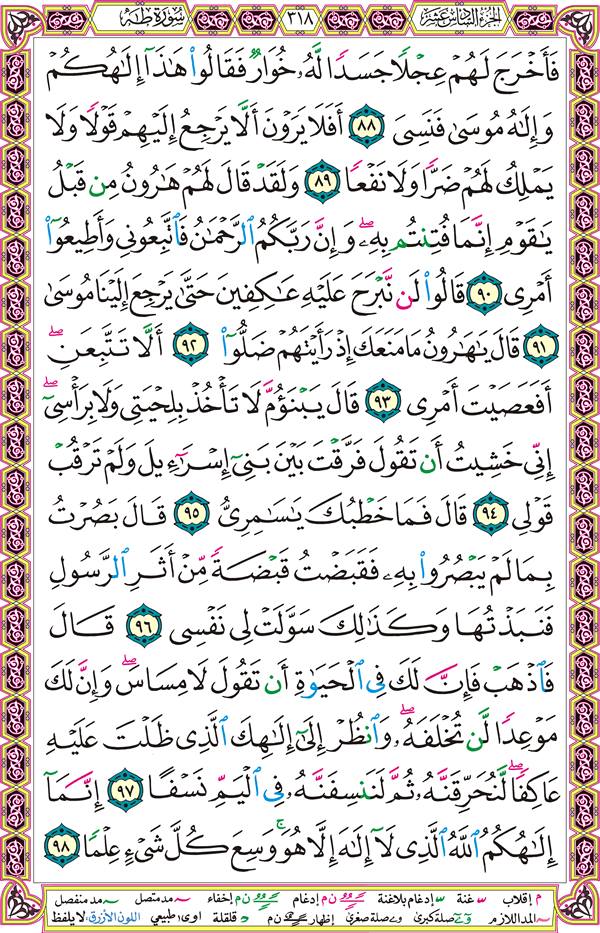 الجزء السادس عشر ٣١٨ سورة طه
فَأَخْرَجَ لَهُمْ عِجْلًا جَسَدًا لَّهُۥ خُوَارٌ فَقَالُوا۟ هَٰذَآ إِلَٰهُكُمْ
وَإِلَٰهُ مُوسَىٰ فَنَسِىَ ٨٨ أَفَلَا يَرَوْنَ أَلَّا يَرْجِعُ إِلَيْهِمْ قَوْلًا وَلَا
يَمْلِكُ لَهُمْ ضَرًّا وَلَا نَفْعًا ٨٩ وَلَقَدْ قَالَ لَهُمْ هَٰرُونُ مِن قَبْلُ
يَٰقَوْمِ إِنَّمَا فُتِنتُم بِهِۦۖ وَإِنَّ رَبَّكُمُ ٱلرَّحْمَٰنُ فَٱتَّبِعُونِى وَأَطِيعُوٓا۟
أَمْرِى ٩٠ قَالُوا۟ لَن نَّبْرَحَ عَلَيْهِ عَٰكِفِينَ حَتَّىٰ يَرْجِعَ إِلَيْنَا مُوسَىٰ
٩١ قَالَ يَٰهَٰرُونُ مَا مَنَعَكَ إِذْ رَأَيْتَهُمْ ضَلُّوٓا۟ ٩٢ أَلَّا تَتَّبِعَنِۖ
أَفَعَصَيْتَ أَمْرِى ٩٣ قَالَ يَبْنَؤُمَّ لَا تَأْخُذْ بِلِحْيَتِى وَلَا بِرَأْسِىٓۖ
إِنِّى خَشِيتُ أَن تَقُولَ فَرَّقْتَ بَيْنَ بَنِىٓ إِسْرَٰٓءِيلَ وَلَمْ تَرْقُبْ
قَوْلِى ٩٤ قَالَ فَمَا خَطْبُكَ يَٰسَٰمِرِىُّ ٩٥ قَالَ بَصُرْتُ
بِمَا لَمْ يَبْصُرُوا۟ بِهِۦ فَقَبَضْتُ قَبْضَةً مِّنْ أَثَرِ ٱلرَّسُولِ
فَنَبَذْتُهَا وَكَذَٰلِكَ سَوَّلَتْ لِى نَفْسِى ٩٦ قَالَ
فَٱذْهَبْ فَإِنَّ لَكَ فِى ٱلْحَيَوٰةِ أَن تَقُولَ لَا مِسَاسَۖ وَإِنَّ لَكَ
مَوْعِدًا لَّن تُخْلَفَهُۥۖ وَٱنظُرْ إِلَىٰٓ إِلَٰهِكَ ٱلَّذِى ظَلْتَ عَلَيْهِ
عَاكِفًاۖ لَّنُحَرِّقَنَّهُۥ ثُمَّ لَنَنسِفَنَّهُۥ فِى ٱلْيَمِّ نَسْفًا ٩٧ إِنَّمَآ
إِلَٰهُكُمُ ٱللَّهُ ٱلَّذِى لَآ إِلَٰهَ إِلَّا هُوَۚ وَسِعَ كُلَّ شَىْءٍ عِلْمًا ٩٨
م إقلاب غنة إدغام بلاغنة ن م إدغام ن م إخفاء مد متصل مد منفصل
المد اللازم صلة كبرى صلة صغرى إظهار ن م قلقلة اوى طبيعي اللون الأزرق: لا يلفظ